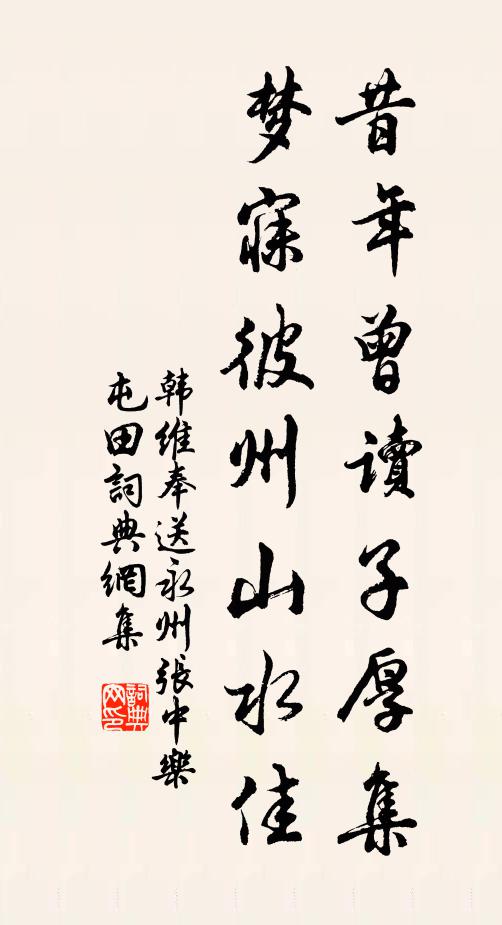 昔年曾讀子厚集
梦寐彼州山水佳
韩維奉送永州張中樂
屯田詞典網集
詞典网印